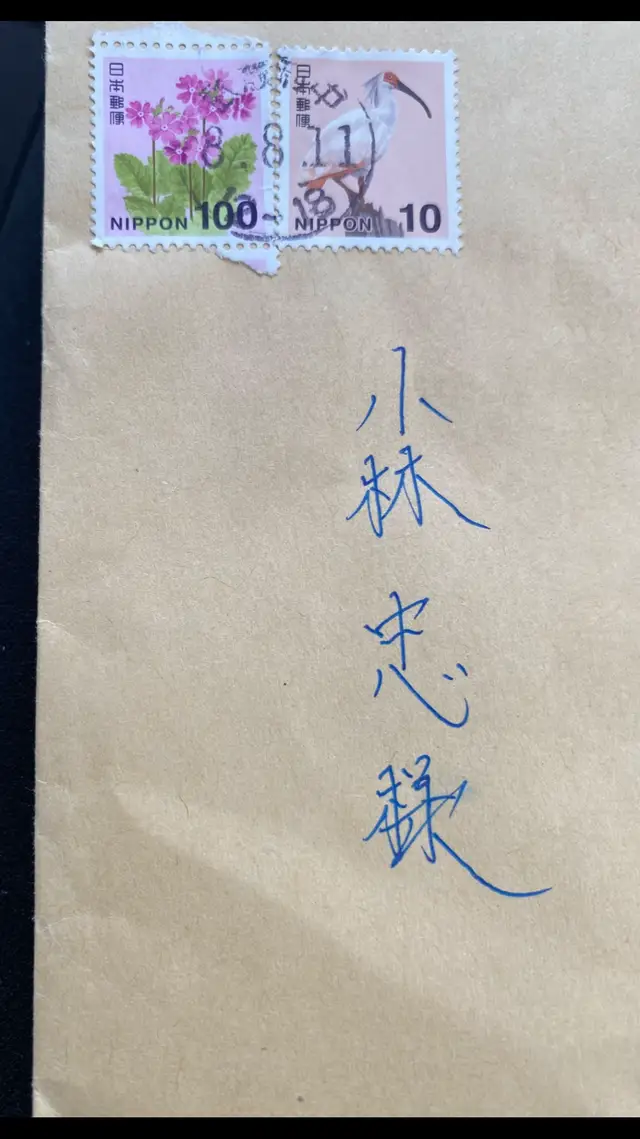 日本郵便
NIPPON 100
日本郵便
NIPPON 10
8. 8. 11
小林 忠 様